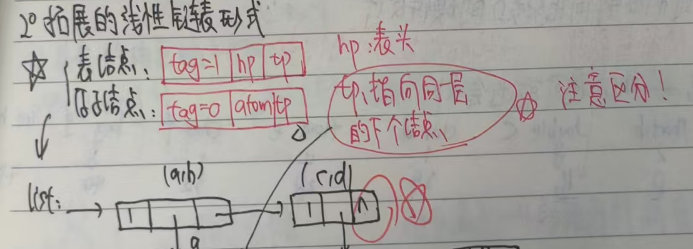 2° 拓展的线性链表形式
☆ 表结点: tag=1 hp tp hp:表头
原子结点: tag=0 atom tp tp:指向同一层的下个结点 ☆ 注意区分!
(a,b) (c,d)
list: → 1 → 1 ∧
a